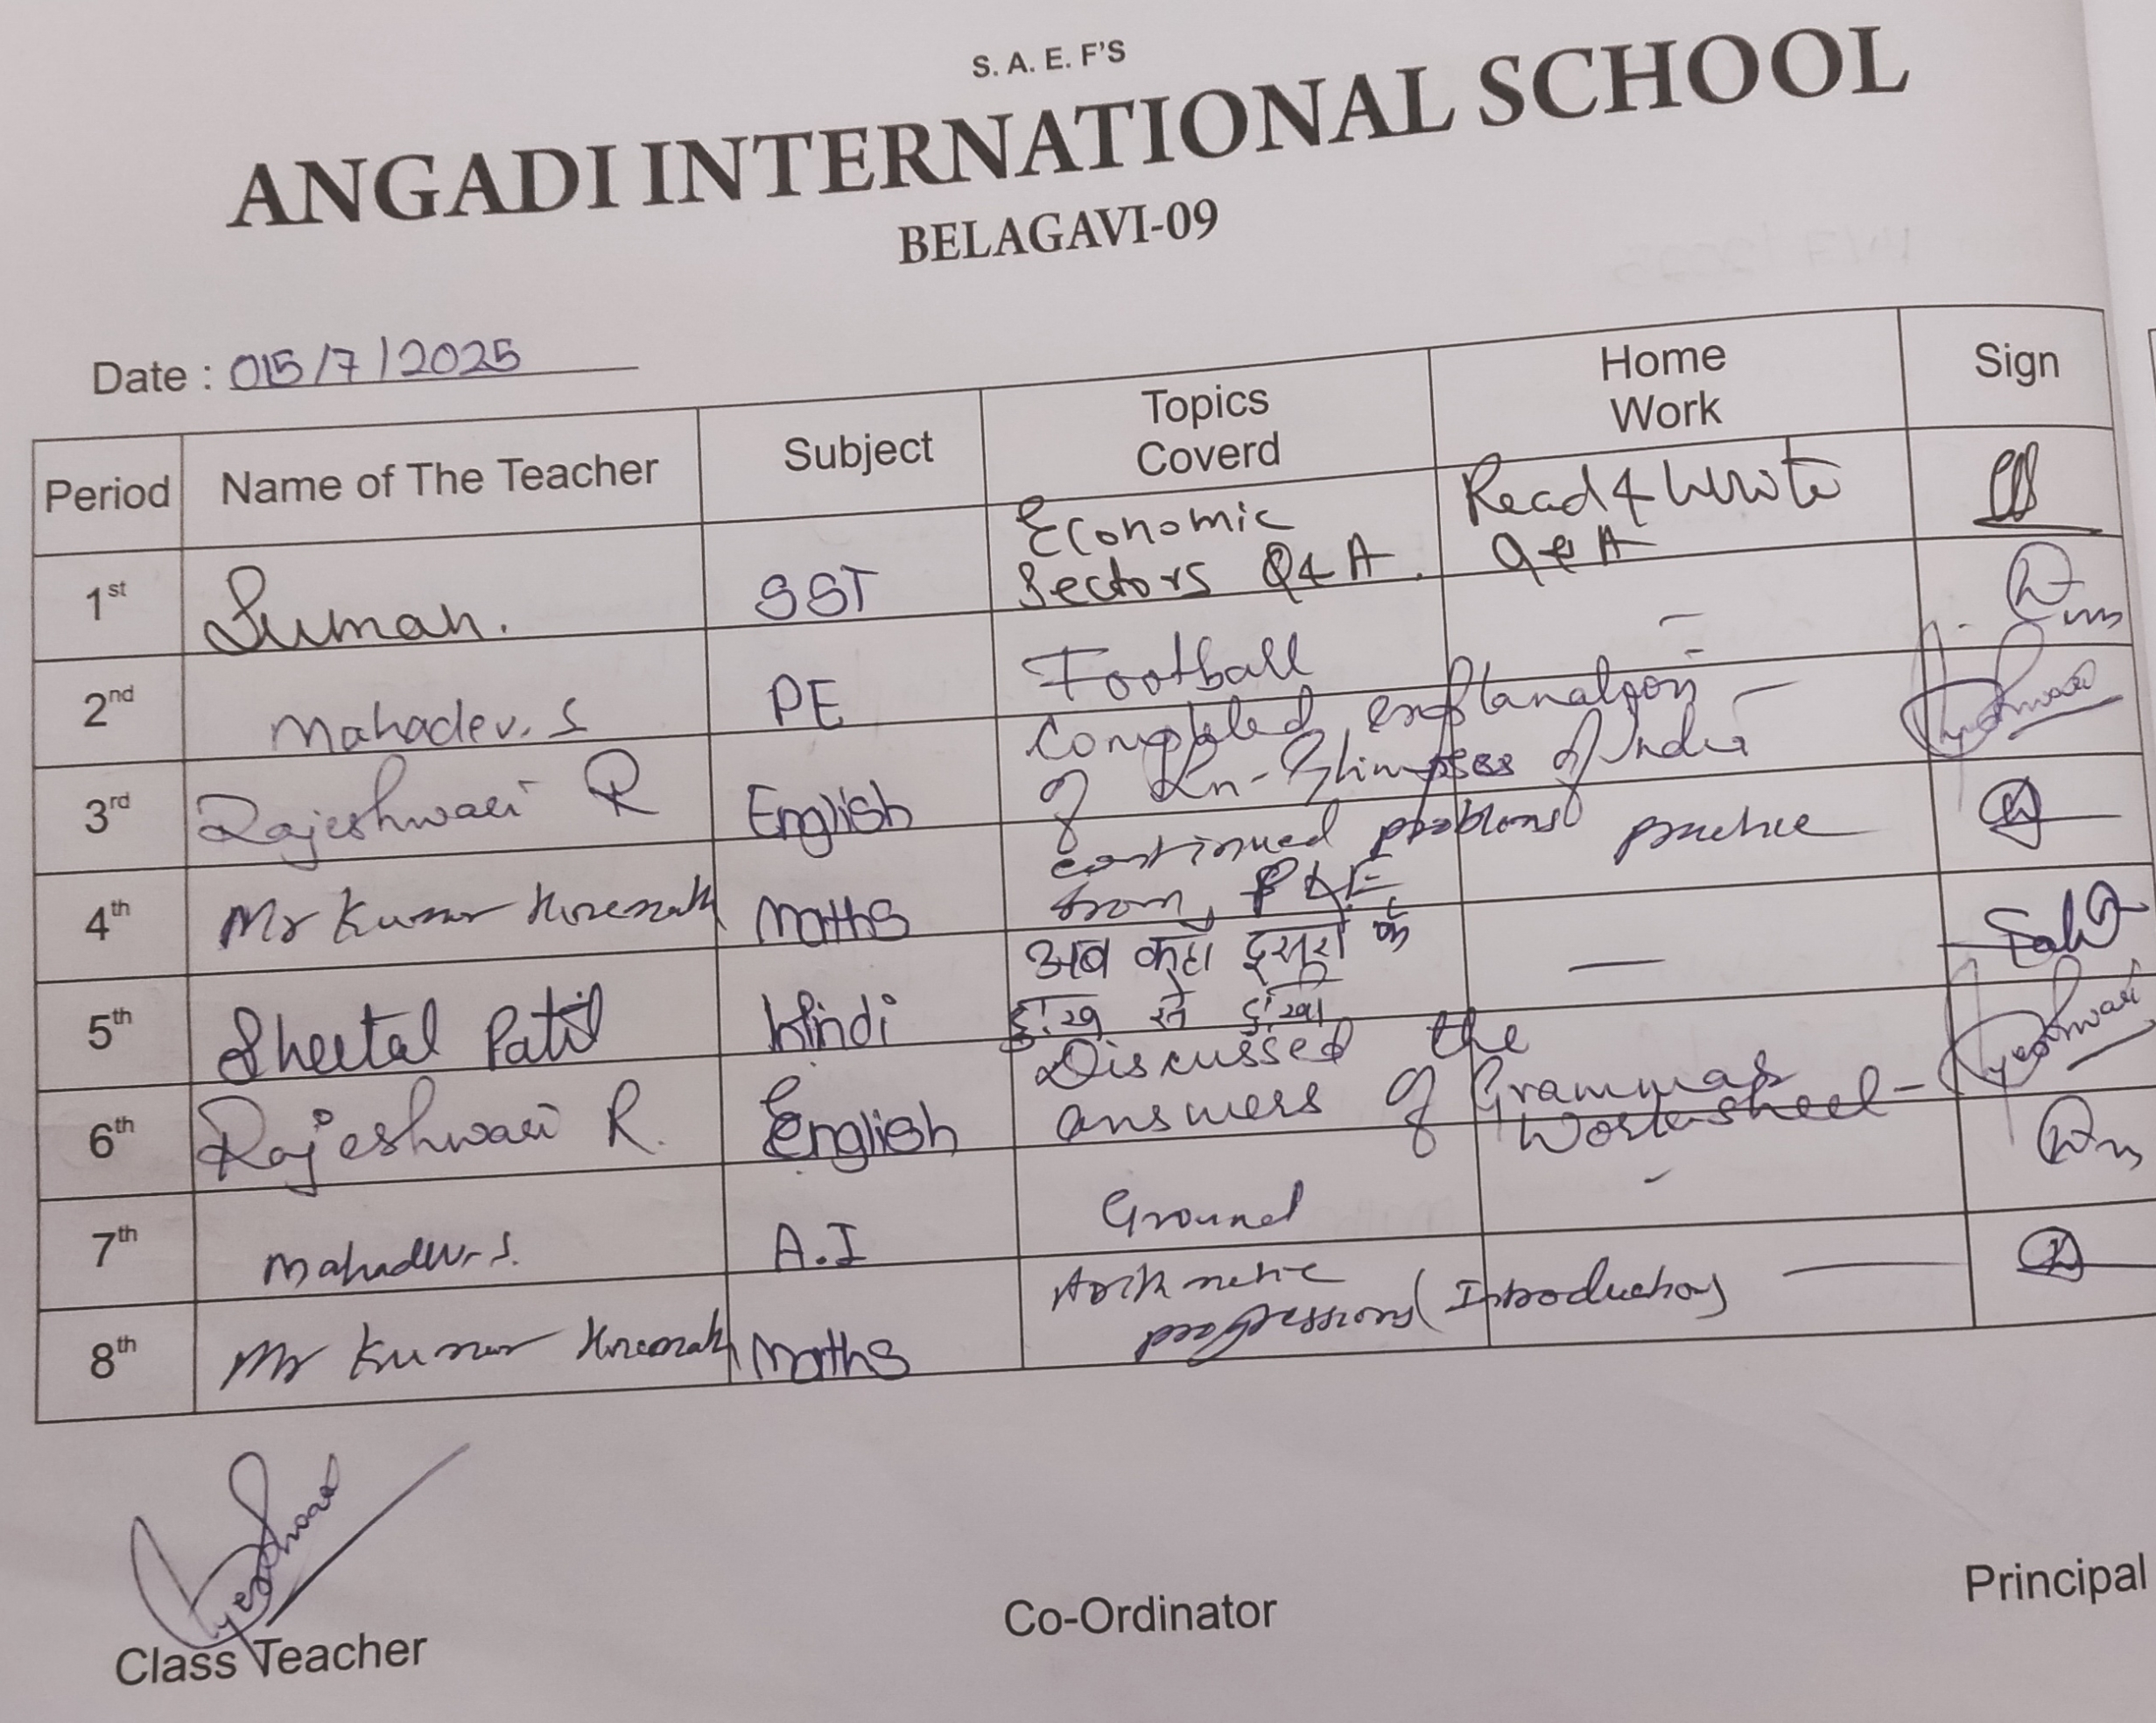 S. A. E. F'S
ANGADI INTERNATIONAL SCHOOL
BELAGAVI-09
Date : 015/7/2025
Period Name of The Teacher Subject Topics Coverd Home Work Sign
1st Suman. SST Economic Sectors Q&A. Read & Write Q&A
2nd Mahadev. S PE Football -
3rd Rajeshwari R English Completed explanation of Ln-Glimpses of India -
4th Mr Kumar Hiremath Maths continued problems practice from, PLE
5th Sheetal Patil Hindi अब कहाँ दूसरों के दुःख से दुःखी —
6th Rajeshwari R. English Discussed the answers of Grammar Worksheet -
7th Mahadev. S. A.I Ground -
8th Mr Kumar Hiremath Maths Arithmetic progressions (Introduction) —
Class Teacher Co-Ordinator Principal